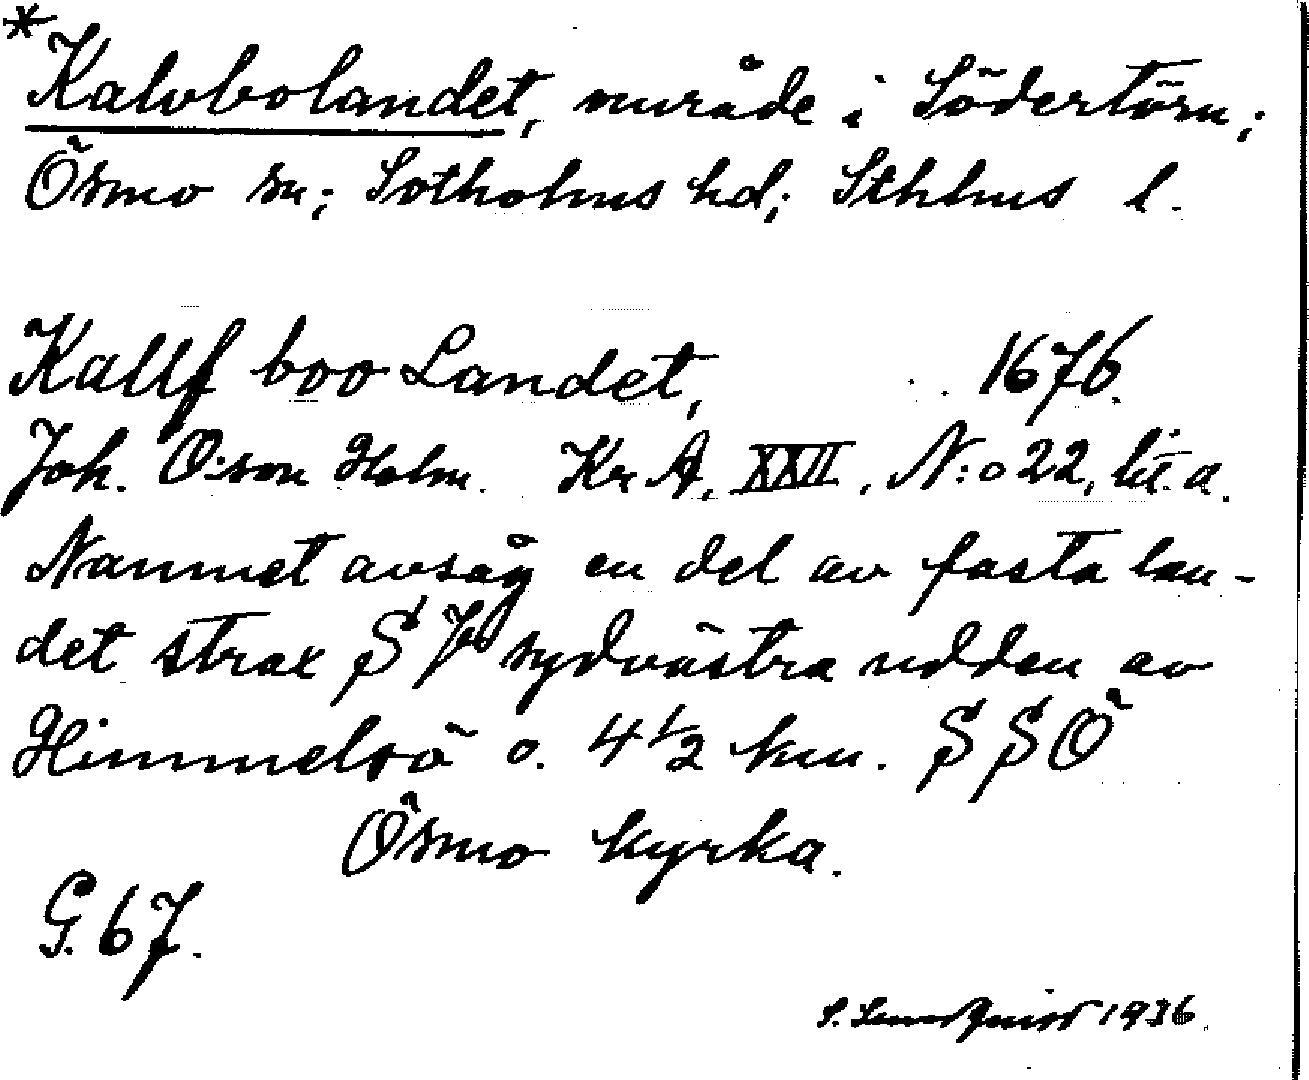 *Kalvbolandet, område i Södertörn;
Ösmo sn; Sotholms hd; Sthlms l.
Kallf boo Landet, 1676.
Joh. O:son Holm. Kr A, XXII, N:o 22, lit. a.
Namnet avsåg en del av fasta lan-
det strax S f sydvästra udden av
Himmelsö o. 4 1/2 km. SSÖ
Ösmo kyrka.
G. 67.
S. 1936.